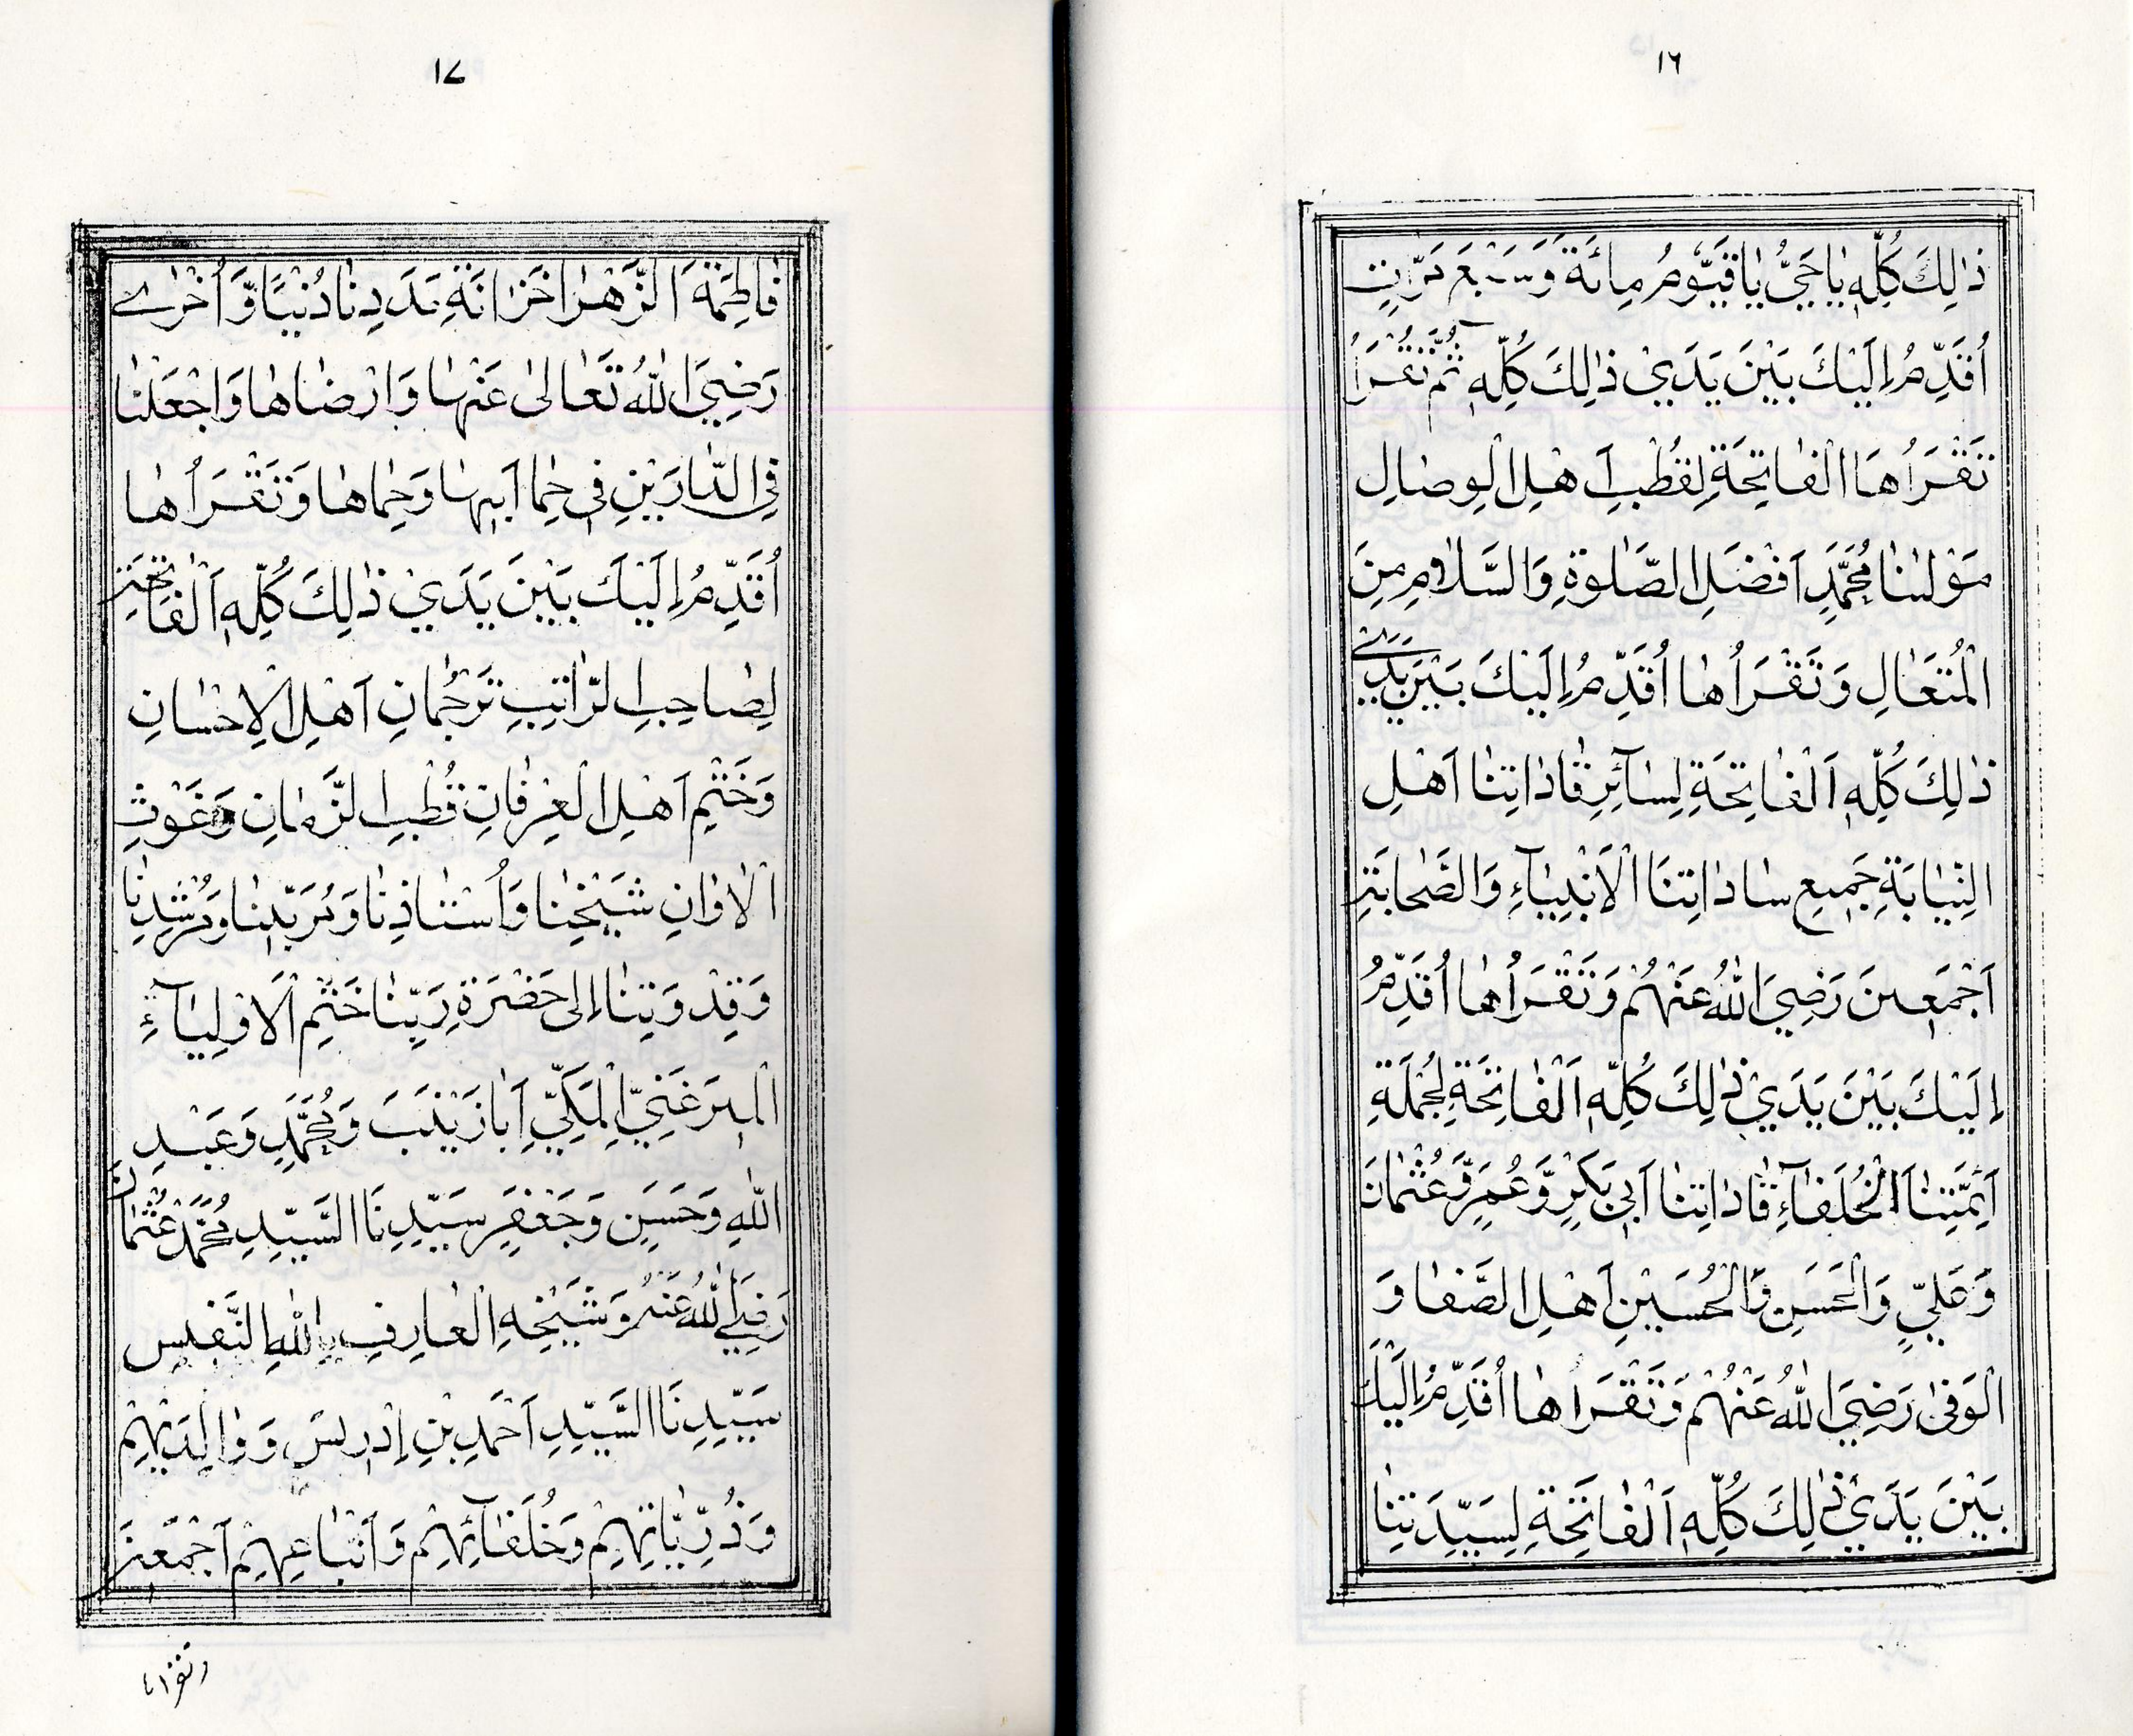 ١٦
ذٰلِكَ كُلِّهٖ يَاحَيُّ يَاقَيُّوْمُ مِائَةً وَسَبْعَ مَرَّاتٍ
أُقَدِّمُ إِلَيْكَ بَيْنَ يَدَيْ ذٰلِكَ كُلِّهٖ ثُمَّ تَقْرَأُ
تَقْرَأُهَا الْفَاتِحَةَ لِقُطْبِ أَهْلِ الْوِصَالِ
مَوْلٰنَا مُحَمَّدٍ أَفْضَلِ الصَّلٰوةِ وَالسَّلَامِ مِنَ
الْمُتَعَالِ وَتَقْرَأُهَا أُقَدِّمُ إِلَيْكَ بَيْنَ يَدَيْ
ذٰلِكَ كُلِّهٖ اَلْفَاتِحَةَ لِسَآئِرِ قَادَاتِنَا أَهْلِ
النِّيَابَةِ جَمِيعِ سَادَاتِنَا الْأَنْبِيَآءِ وَالصَّحَابَةِ
أَجْمَعِينَ رَضِيَ اللّٰهُ عَنْهُمْ وَتَقْرَأُهَا أُقَدِّمُ
إِلَيْكَ بَيْنَ يَدَيْ ذٰلِكَ كُلِّهٖ اَلْفَاتِحَةَ لِجُمْلَةِ
أَئِمَّتِنَا الْخُلَفَآءِ قَادَاتِنَا أَبِي بَكْرٍ وَّعُمَرَ وَعُثْمَانَ
وَعَلِيٍّ وَالْحَسَنِ وَالْحُسَيْنِ أَهْلِ الصَّفَا وَ
الْوَفٰى رَضِيَ اللّٰهُ عَنْهُمْ وَتَقْرَأُهَا أُقَدِّمُ إِلَيْكَ
بَيْنَ يَدَيْ ذٰلِكَ كُلِّهٖ اَلْفَاتِحَةَ لِسَيِّدَتِنَا
١٧
فَاطِمَةَ الزَّهْرَا خَزَانَةِ مَدَدِنَا دُنْيًا وَّأُخْرٰى
رَضِيَ اللّٰهُ تَعَالٰى عَنْهَا وَارْضَاهَا وَاجْعَلْنَا
فِي الدَّارَيْنِ فِي حِمَا أَبِيهَا وَحِمَاهَا وَتَقْرَأُهَا
أُقَدِّمُ إِلَيْكَ بَيْنَ يَدَيْ ذٰلِكَ كُلِّهٖ اَلْفَاتِحَةَ
لِصَاحِبِ الرَّاتِبِ تَرْجُمَانِ أَهْلِ الْإِحْسَانِ
وَخَتْمِ أَهْلِ الْعِرْفَانِ قُطْبِ الزَّمَانِ وَغَوْثِ
الْأَوَانِ شَيْخِنَا وَأُسْتَاذِنَا وَمُرَبِّينَا وَمُرْشِدِنَا
وَقِدْوَتِنَا إِلٰى حَضْرَةِ رَبِّنَا خَتْمِ الْأَوْلِيَآءِ
الْمِيرَغَنِيِّ الْمَكِّيِّ أَبَا زَيْنَبَ وَمُحَمَّدٍ وَعَبْدِ
اللّٰهِ وَحَسَنٍ وَجَعْفَرٍ سَيِّدِنَا السَّيِّدِ مُحَمَّدْ عُثْمَانَ
رَضِيَ اللّٰهُ عَنْهُ وَشَيْخِهِ الْعَارِفِ بِاللّٰهِ النَّفِيسِ
سَيِّدِنَا السَّيِّدِ أَحْمَدِ بْنِ إِدْرِيسَ وَوَالِدَيْهِمْ
وَذُرِّيَّاتِهِمْ وَخُلَفَآئِهِمْ وَأَتْبَاعِهِمْ أَجْمَعِينَ
وتقرأها